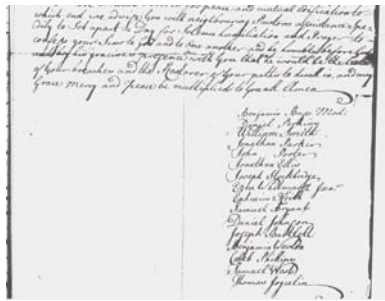 peace and mutual Edification to
which end we advise you with neighbouring Pastors assistance spe-
dily to Set apart a Day for Solemn humiliation and Prayer to
confess your Sins to God and to one another and be humble before God
his gracious presence with you that he would be the
of your breaches and the Restorer of your paths to dwell in, and may
Grace Mercy and Peace be multiplied to you Amen
Benjamin Bass Mod:
Daniel Perkins
William Smith
Jonathan Parker
John Porter
Jonathan Ellis
Joseph Stockbridge
Ezra Whitmarsh Jun
Ephraim
Samuel Bryant
Daniel Johnson
Joseph Bartlett
Benjamin
Caleb Phillips
Samuel West
Thomas Josselin